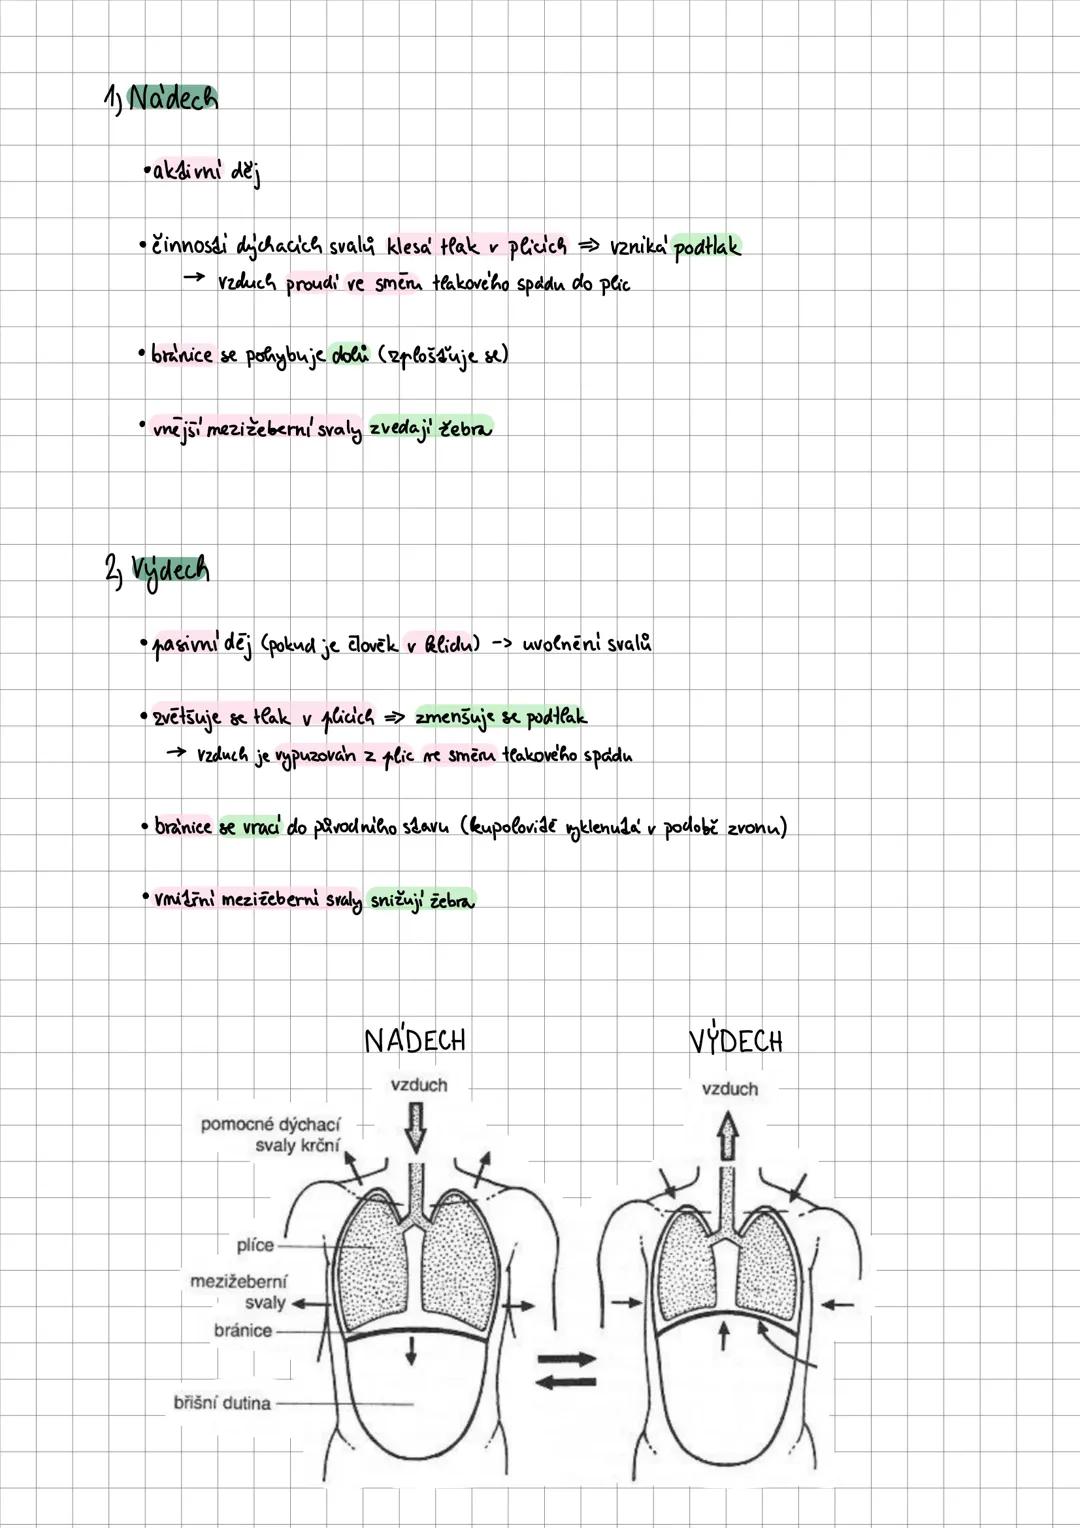 1) Nádech
• aktivní děj
• činností dýchacích svalů klesá tlak v plicích ⇒ vzniká podtlak
→ vzduch proudí ve směru tlakového spádu do plic
• bránice se pohybuje dolů (zplošťuje se)
• vnější mezižeberní svaly zvedají žebra
2) Výdech
• pasivní děj (pokud je člověk v klidu) -> uvolnění svalů
• zvětšuje se tlak v plicích => zmenšuje se podtlak
→ vzduch je vypuzován z plic ve směru tlakového spádu
• bránice se vrací do původního stavu (kupolovitě vyklenutá v podobě zvonu)
• vnitřní mezižeberní svaly snižují žebra
NÁDECH
VÝDECH
vzduch
vzduch
pomocné dýchací
svaly krční
plíce
mezižeberní
svaly
bránice
břišní dutina